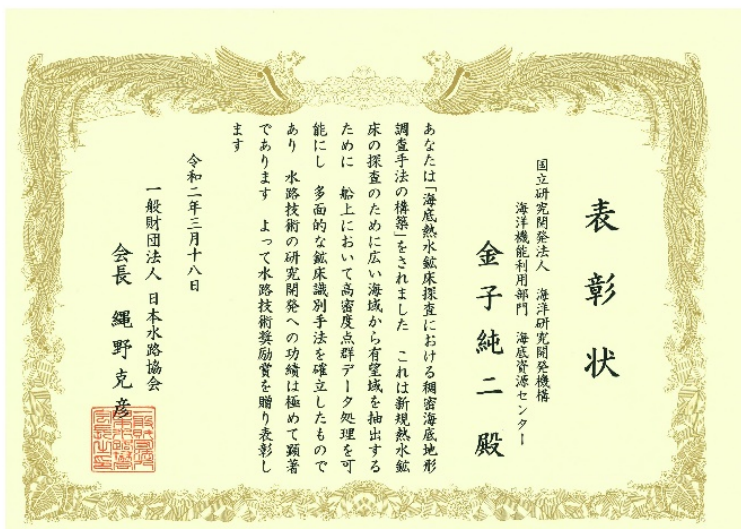 表彰状
国立研究開発法人 海洋研究開発機構
海洋機能利用部門 海底資源センター
金子純二 殿
あなたは「海底熱水鉱床探査における稠密海底地形
調査手法の構築」をされました これは新規熱水鉱
床の探査のために広い海域から有望域を抽出する
ために 船上において高密度点群データ処理を可
能にし 多面的な鉱床識別手法を確立したもので
あり 水路技術の研究開発への功績は極めて顕著
であります よって水路技術奨励賞を贈り表彰し
ます
令和二年三月十八日
一般財団法人 日本水路協会
会長 縄野克彦